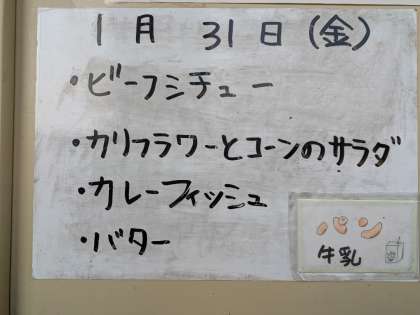 1月 31日(金)
・ビーフシチュー
・カリフラワーとコーンのサラダ
・カレーフィッシュ
・バター
パン
牛乳